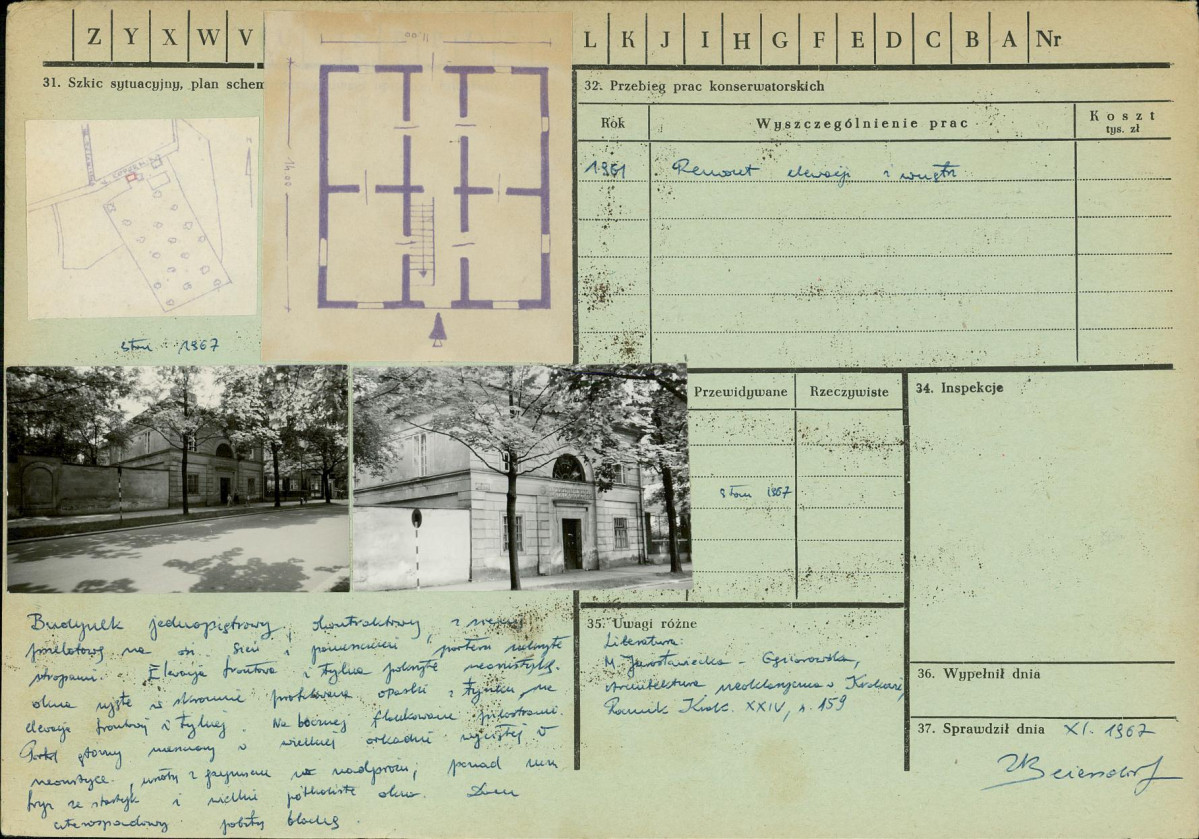 Z Y X W V L K J I H G F E D C B A Nr
31. Szkic sytuacyjny, plan schem
11.00
14.00
stan 1967
32. Przebieg prac konserwatorskich
Rok Wyszczególnienie prac Koszt tys. zł
1961 Remont elewacji i wnętrz
Przewidywane Rzeczywiste
stan 1967
34. Inspekcje
Budynek jednopiętrowy, dwutraktowy, z
przelotową na osi. Sień i pomieszczenia parteru nakryte
stropami. Elewacja frontowa i tylna pokryte neorustyką,
okna ujęte w skromnie profilowane opaski z tynku, na
elewacji frontowej i tylnej. Na bocznej flankowane pilastrami.
Portal główny w wielkiej arkadzie wyciętej w
neorustyce, z gzymsem na nadprożu; ponad nim
fryz ze i wielkie półkoliste okno. Dach
czterospadowy pobity blachą.
35. Uwagi różne
Literatura:
M. Jarosławiecka - Gąsiorowska,
Architektura neoklasyczna w Krakowie,
Rocznik Krak. XXIV, s. 159
36. Wypełnił dnia
37. Sprawdził dnia XI. 1967
Beiersdorf